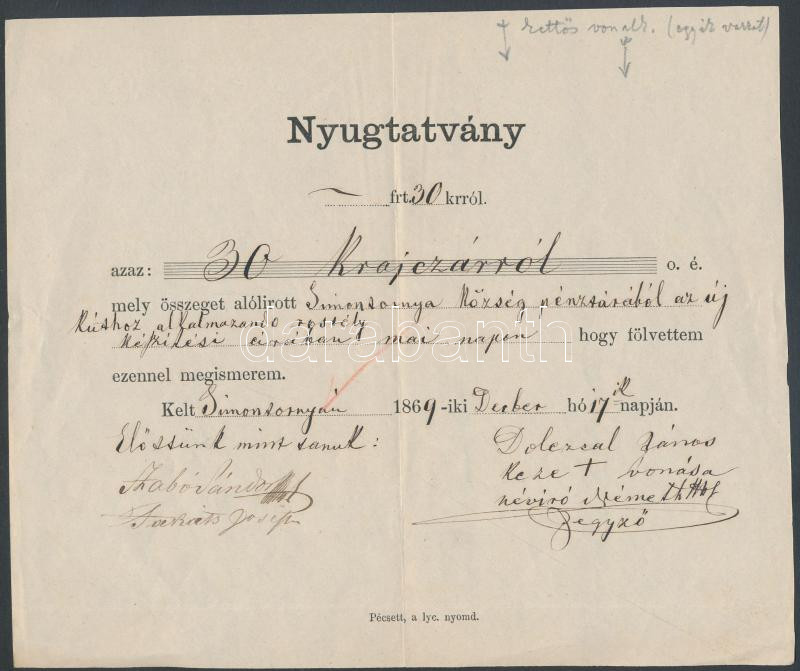 kettős vonalk. (egyik
Nyugtatvány
frt. 30 krról.
azaz: 30 Krajczárról o. é.
mely összeget alólirott Simontornya Község pénztárából az új
Kúthoz alkalmazando rostély
Készitési árában mai napon hogy fölvettem
ezennel megismerem.
Kelt Simontornyán 1869-iki Decber hó 17ik napján.
Előttünk mint tanuk:
Szabó Sándor
Takáts Josip
Dolezsal János
keze + vonása
névíró Németh
Jegyző
darabanth
Pécsett, a lyc. nyomd.